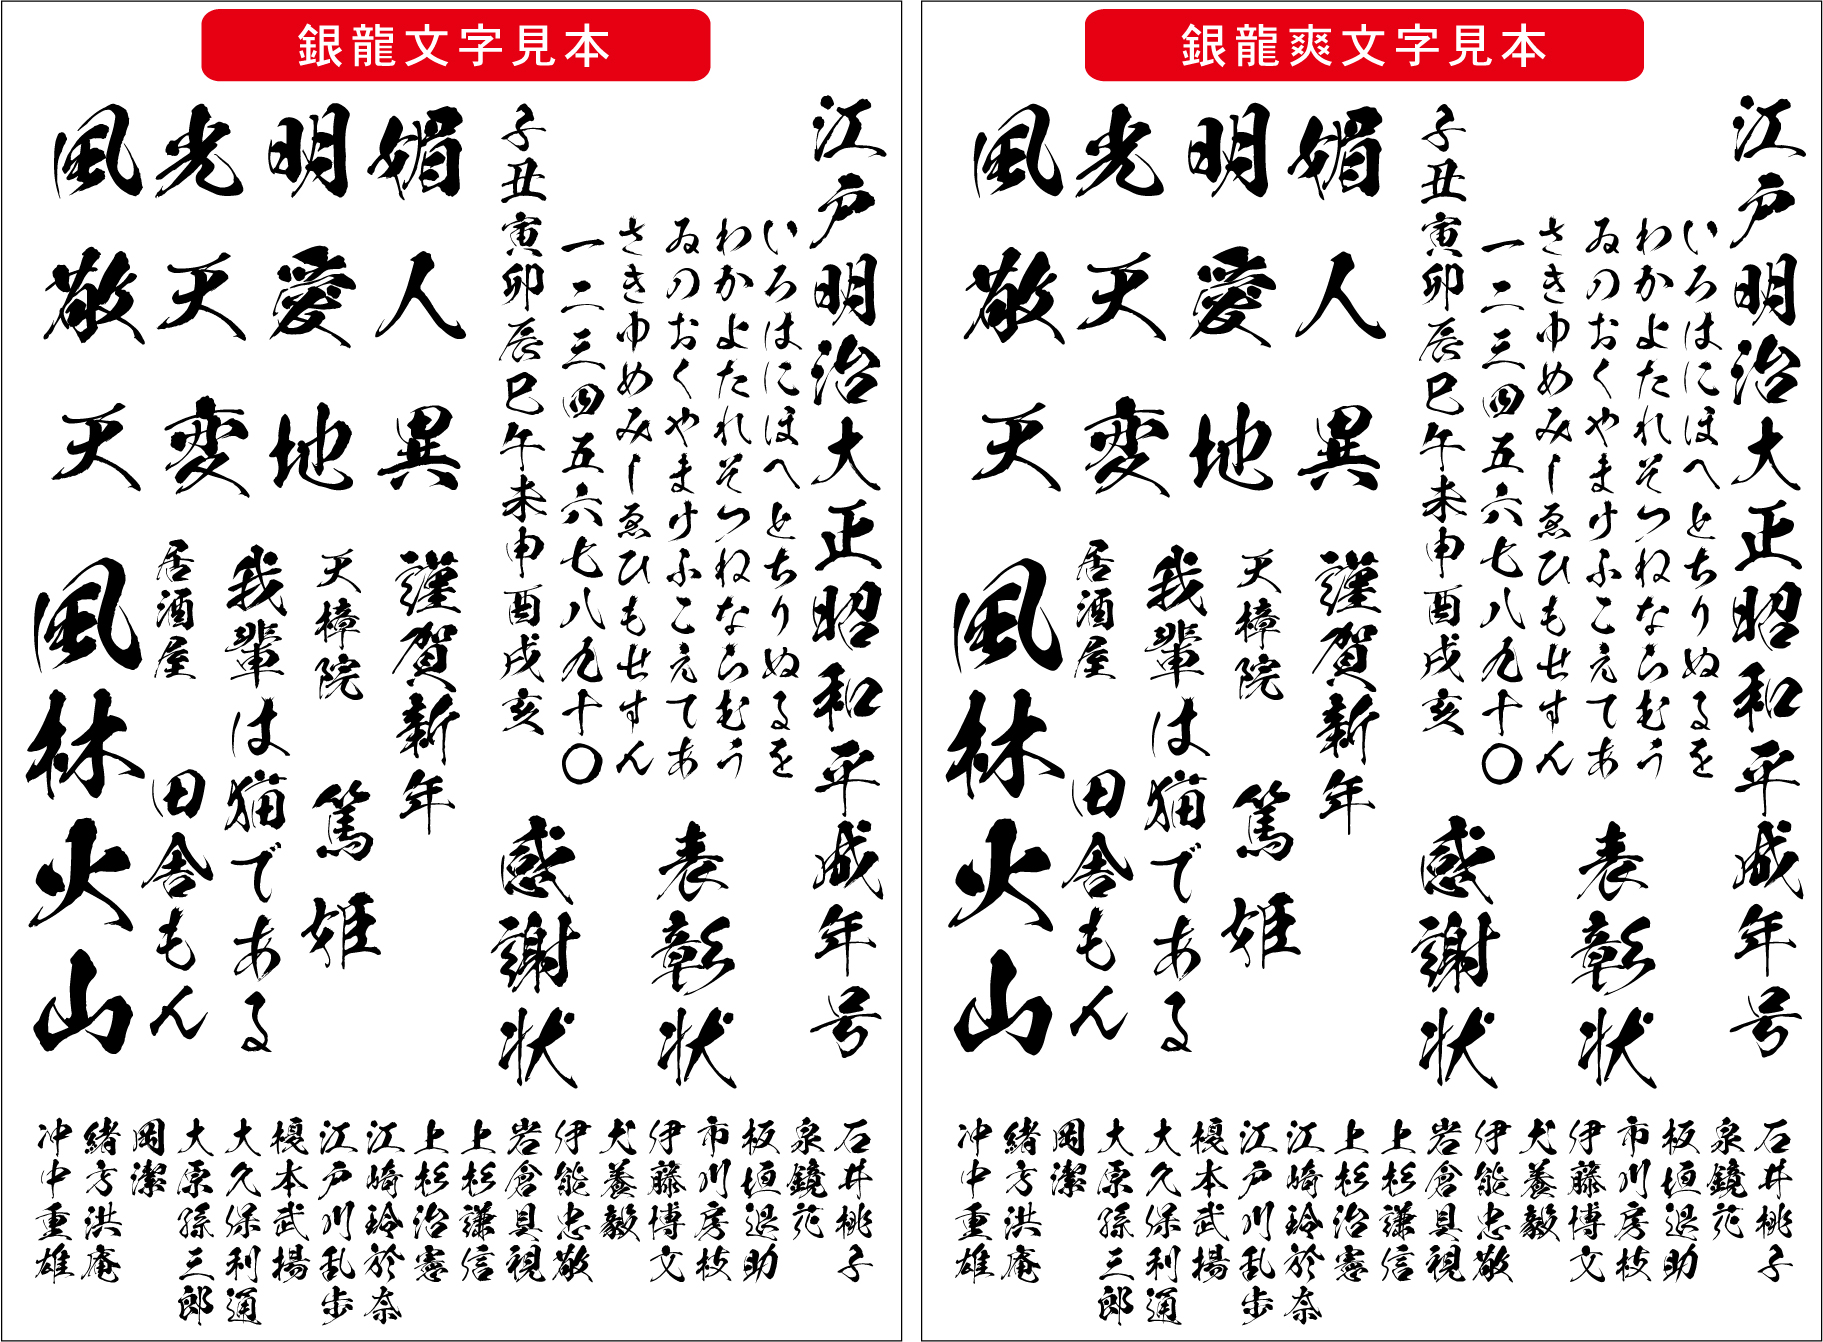 銀龍文字見本
江戸明治大正昭和平成年号
いろはにほへとちりぬるを
わかよたれそつねならむう
ゐのおくやまけふこえてあ
さきゆめみしゑひもせすん
一二三四五六七八九十〇
子丑寅卯辰巳午未申酉戌亥
表彰状
感謝状
媚明光風
人愛天敬
異地変天
謹賀新年
天樟院
篤姫
我輩は猫である
居酒屋
田舎もん
風林火山
石井桃子
泉鏡花
板垣退助
市川房枝
伊藤博文
犬養毅
伊能忠敬
岩倉具視
上杉謙信
上杉治憲
江崎玲於奈
江戸川乱歩
榎本武揚
大久保利通
大原孫三郎
岡潔
緒方洪庵
冲中重雄
銀龍爽文字見本
江戸明治大正昭和平成年号
いろはにほへとちりぬるを
わかよたれそつねならむう
ゐのおくやまけふこえてあ
さきゆめみしゑひもせすん
一二三四五六七八九十〇
子丑寅卯辰巳午未申酉戌亥
表彰状
感謝状
媚明光風
人愛天敬
異地変天
謹賀新年
天樟院
篤姫
我輩は猫である
居酒屋
田舎もん
風林火山
石井桃子
泉鏡花
板垣退助
市川房枝
伊藤博文
犬養毅
伊能忠敬
岩倉具視
上杉謙信
上杉治憲
江崎玲於奈
江戸川乱歩
榎本武揚
大久保利通
大原孫三郎
岡潔
緒方洪庵
冲中重雄